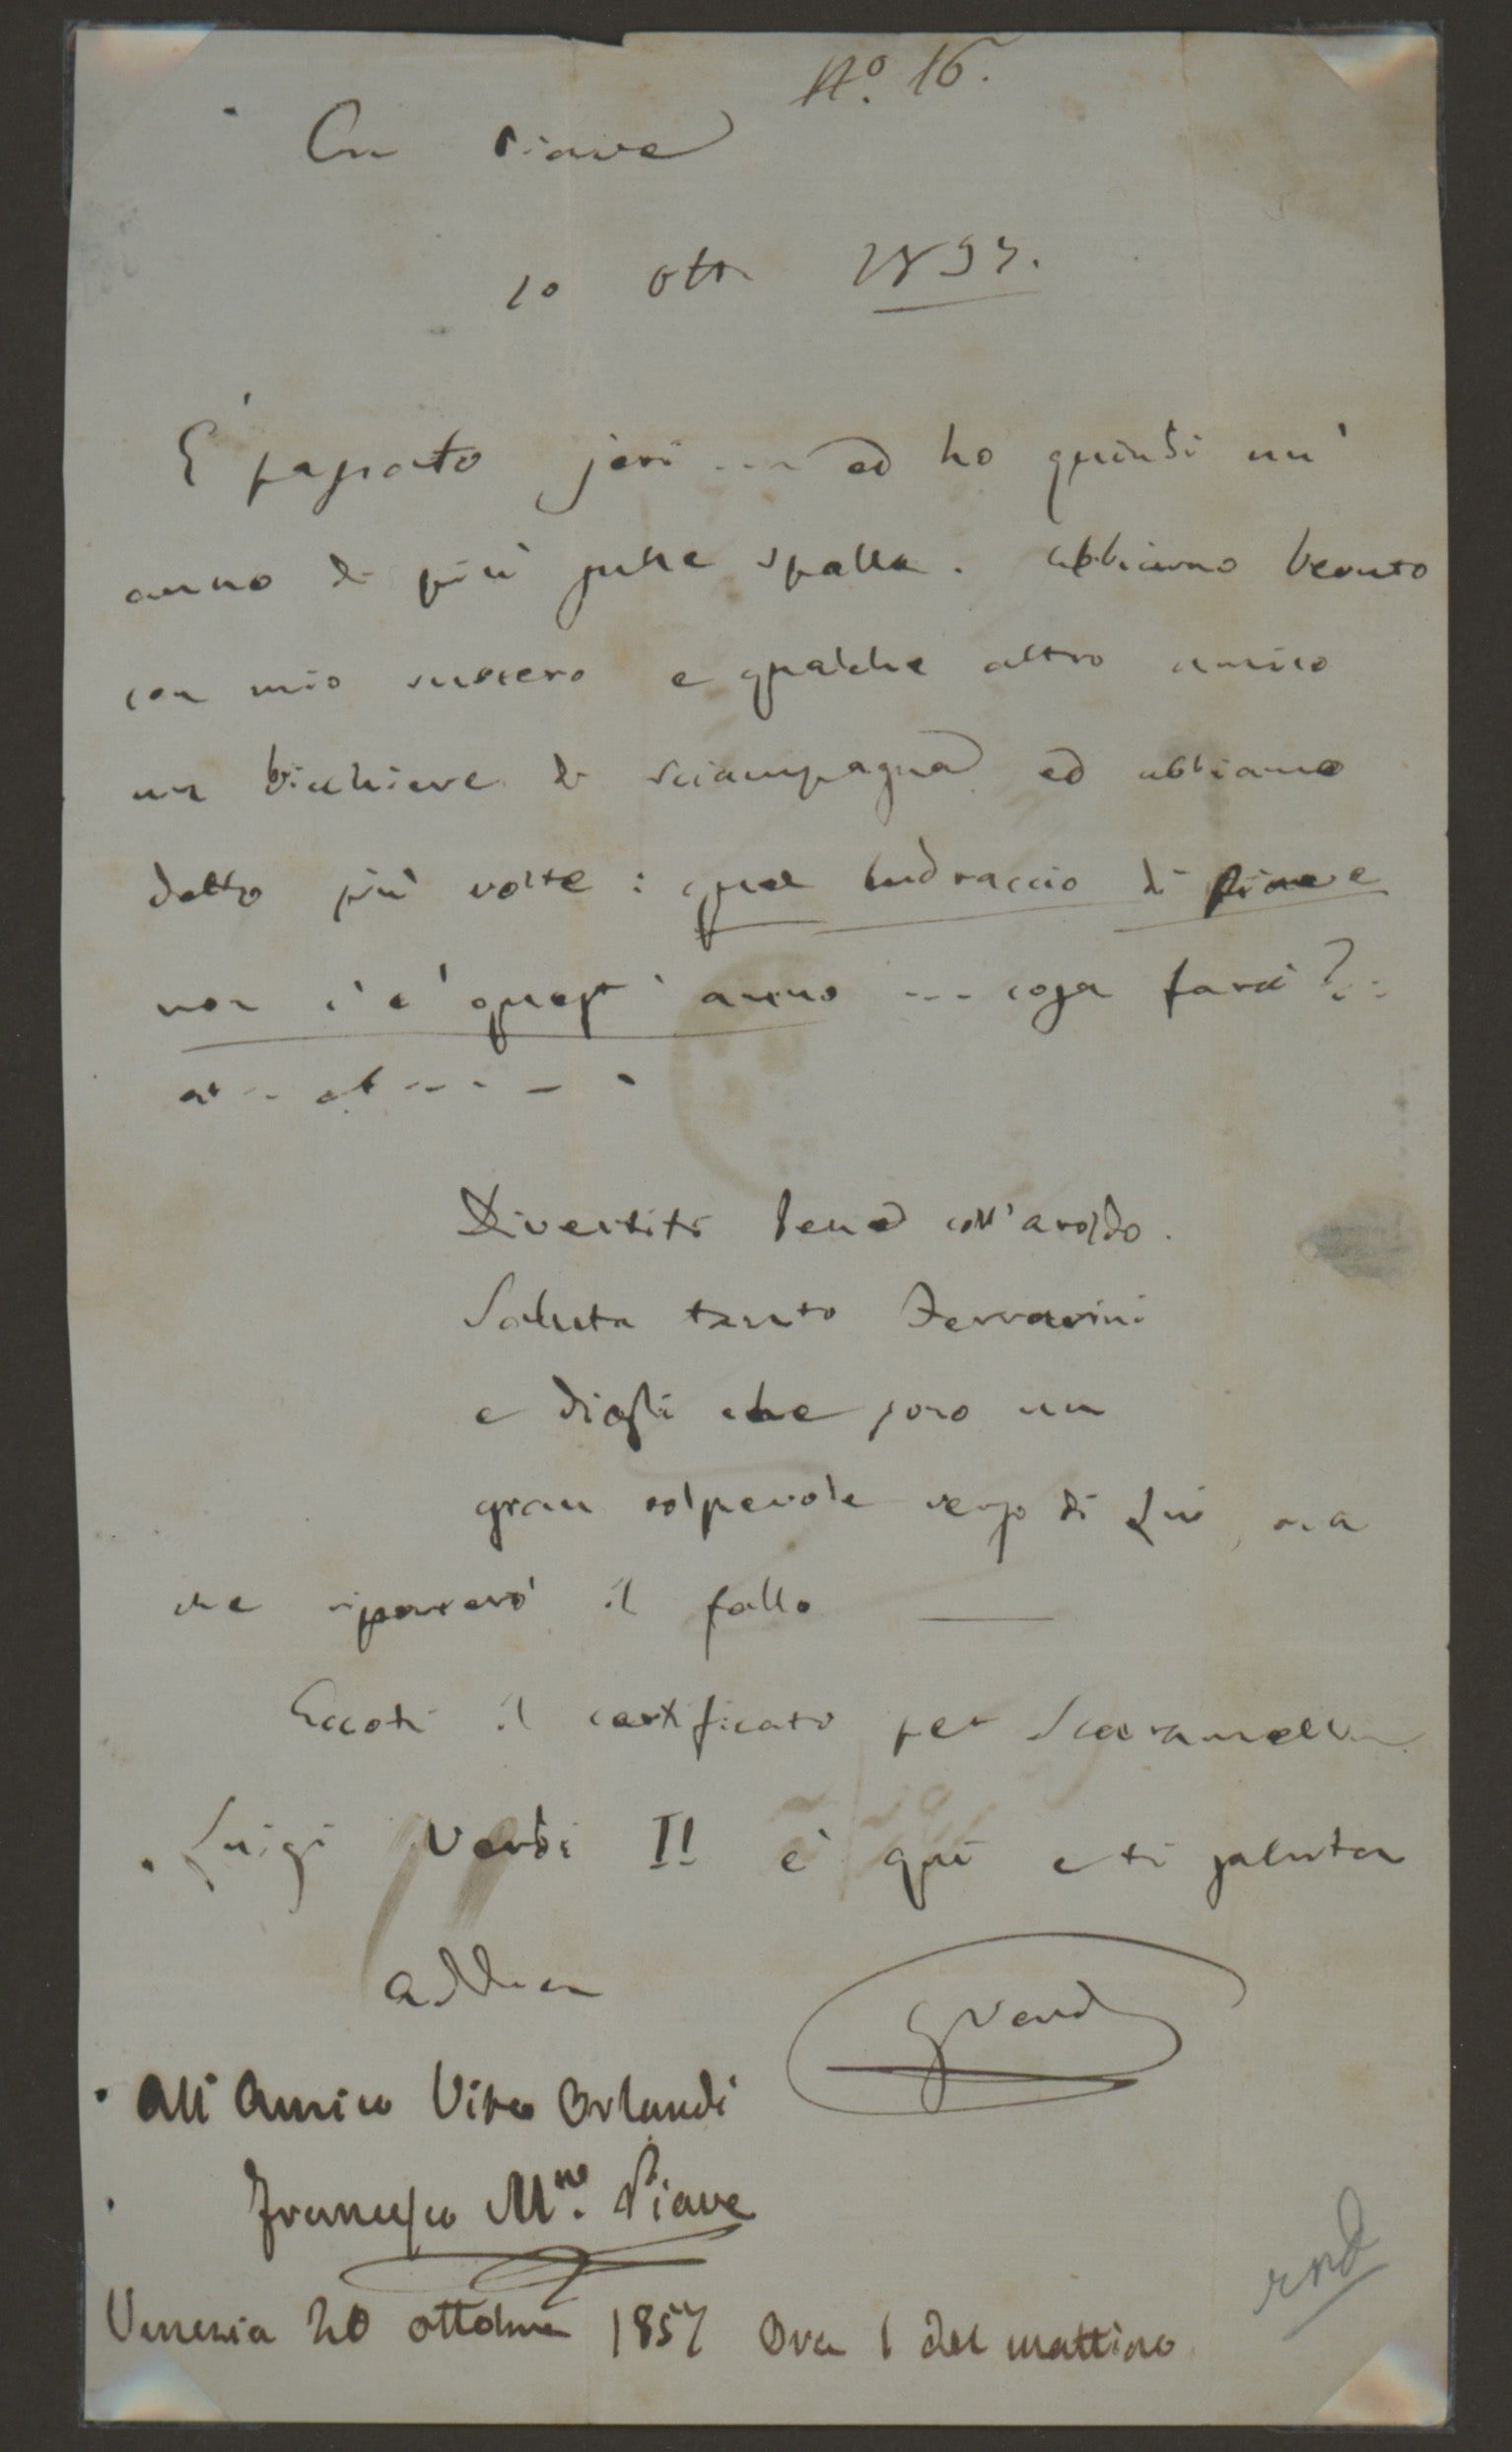 N.º 16.
Ca Piave
10 Ott 1857.
E' passato jeri ... ed ho quindi un'
anno di più sulle spalle. Abbiamo bevuto
con mio suocero e qualche altro amico
un bicchiere di sciampagna ed abbiamo
detto più volte: quel ludraccio di Piave
non c'è quest'anno ... cosa farà?..
at .. at ... - .
Divertiti bene coll'Aroldo.
Saluta tanto Ferrarini
e digli che sono un
gran colpevole verso di Lui, ma
che riparerò il fallo ——
Eccoti il certificato per
Luigi Verdi II è qui e ti saluta
Addio
G Verdi
All'Amico Vito Orlandi
Francesco Mª. Piave
Venezia 20 ottobre 1857 Ora 1 del mattino